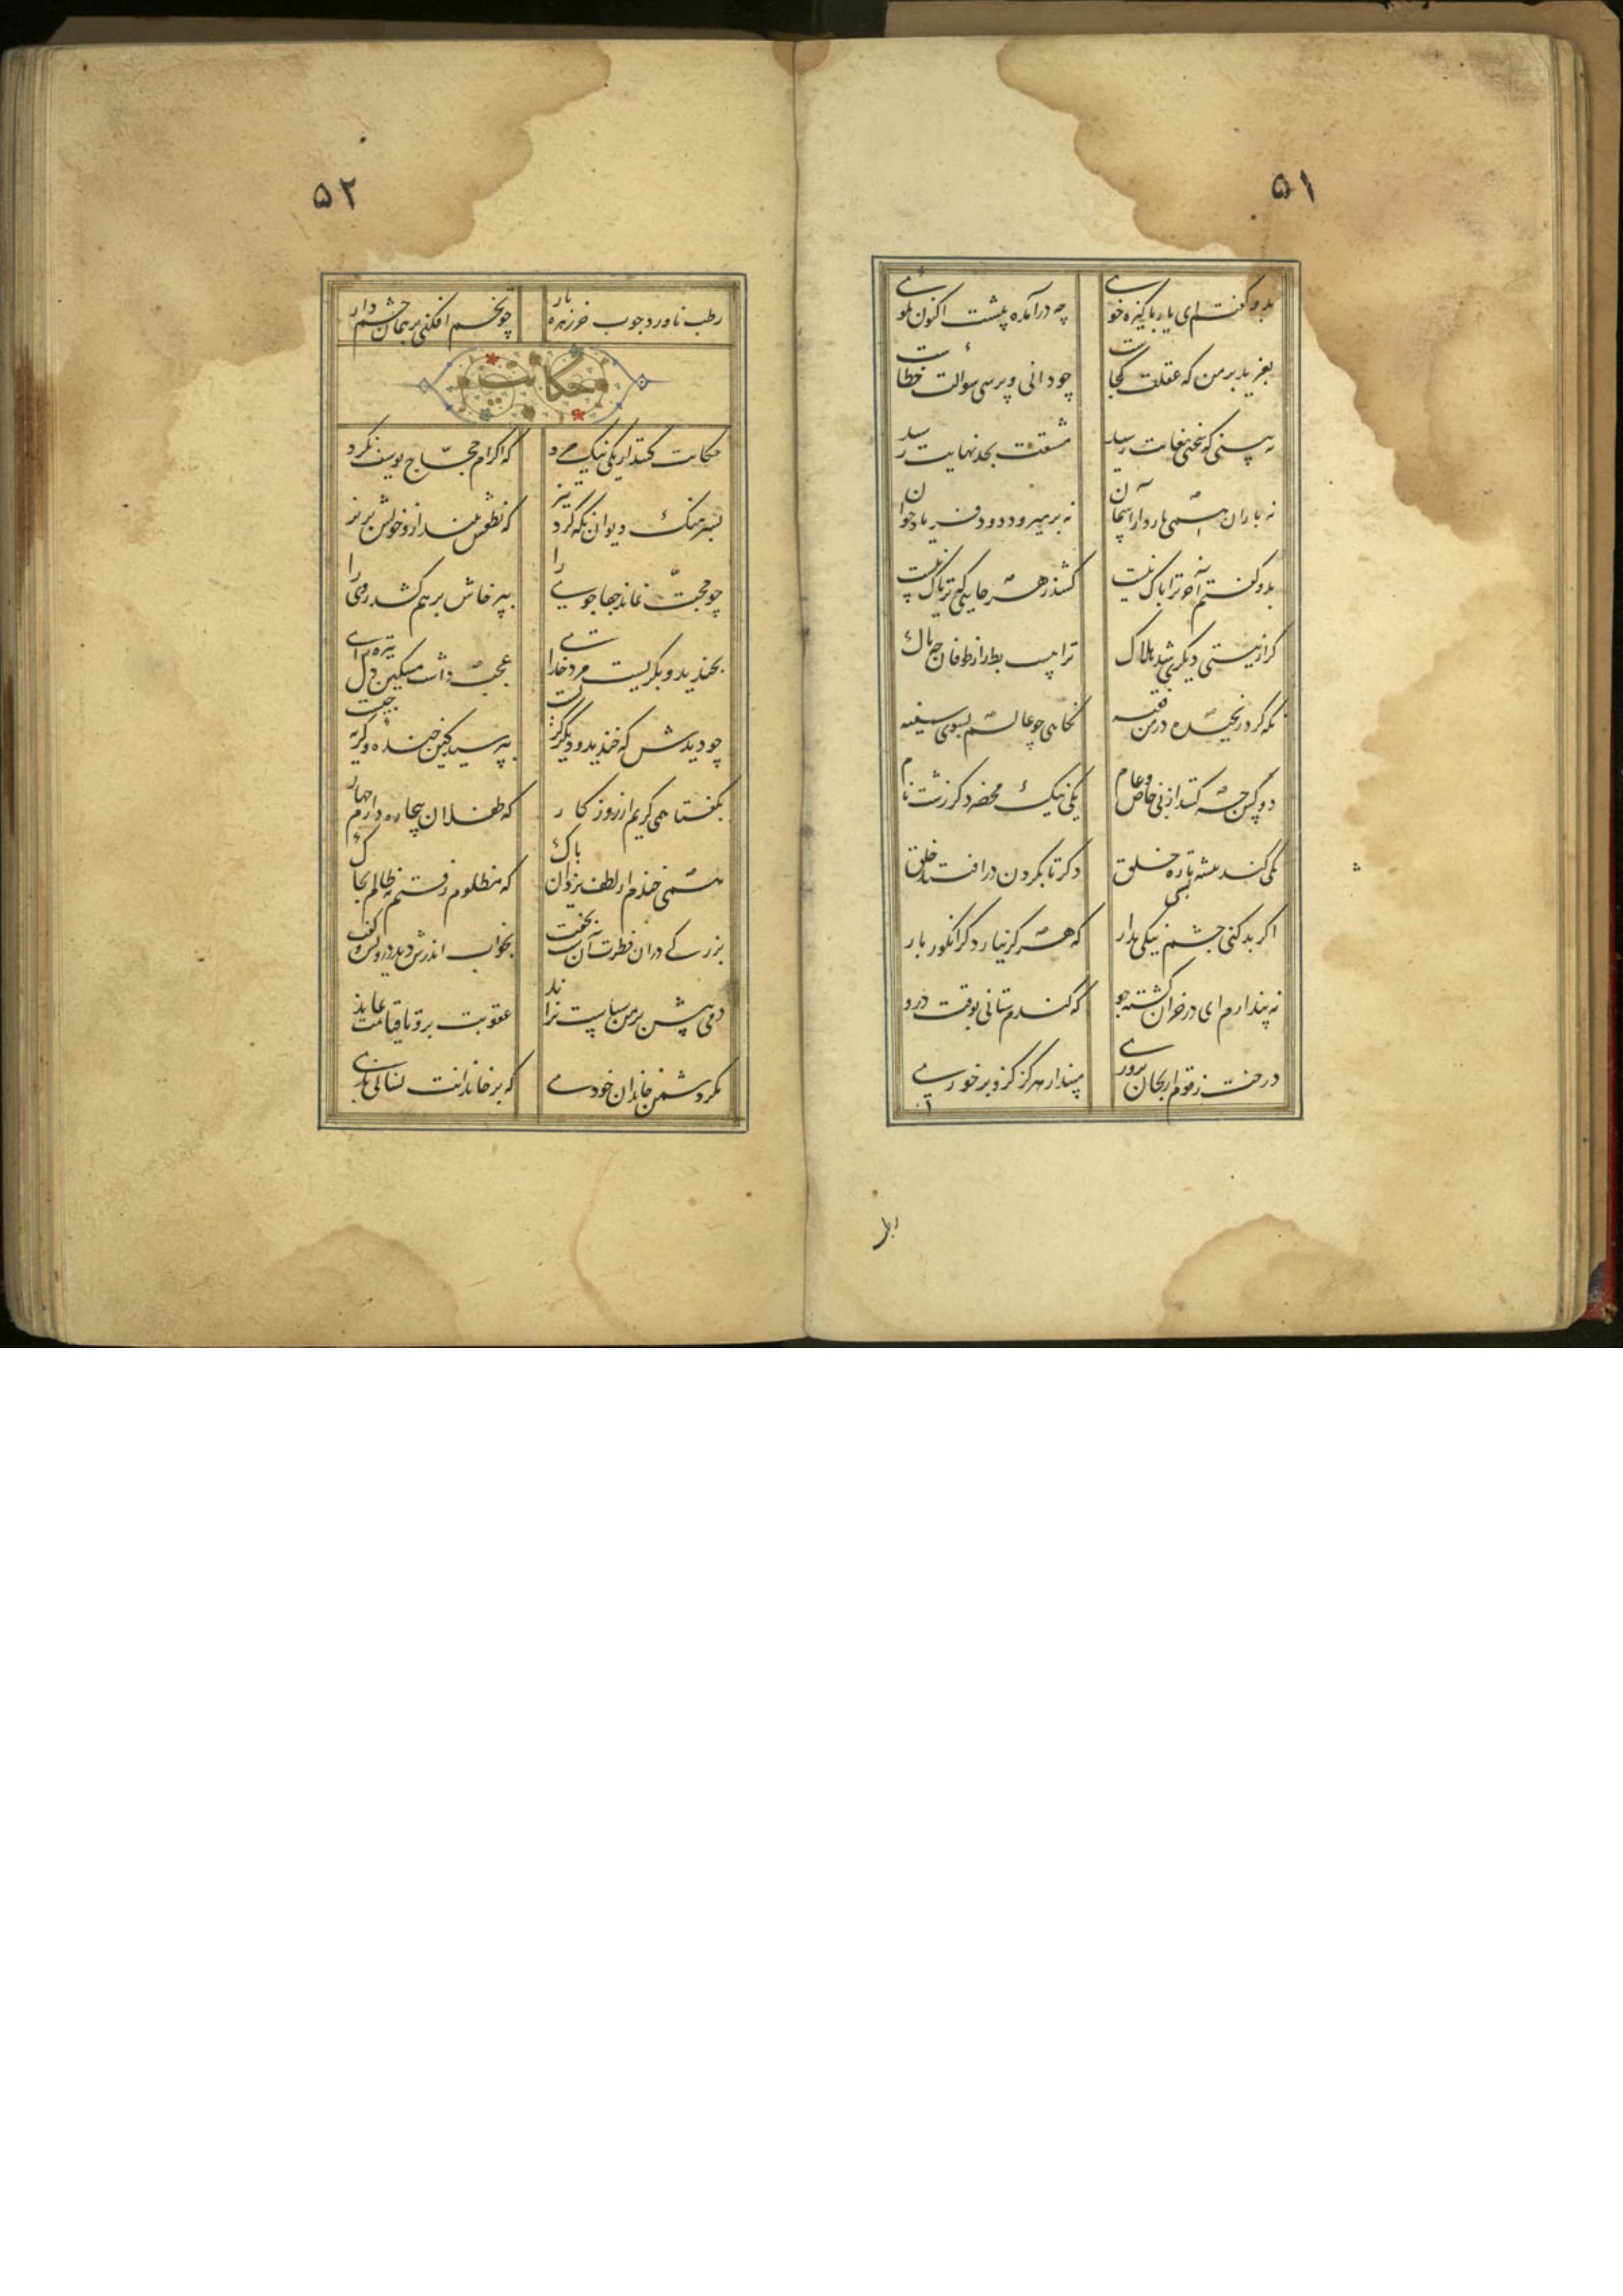 ۵۱
بدو گفتم ای یار پاکیزه خوی چه درآمده پیشت اکنون بگوی
بغرید بر من که عقلت کجاست چو دانی و پرسی سوالت خطاست
نه بینی که سختی بغایت رسید مشقت بحد نهایت رسید
نه باران همی بارد از آسمان نه بر میرود دود فریاد خوان
بدو گفتم آخر ترا باک نیست کشد زهر جایی که تریاک نیست
گر از نیستی دیگری شد هلاک ترا هست بط را ز طوفان چه باک
نگه کرد رنجیده در من فقیه نگاهی چو عالم بسوی سفیه
دو کس چه کنند از پی خاص و عام یکی نیک محضر دگر زشت نام
یکی کند تشنه تازه حلق دگر تا بگردن در افتند خلق
اگر بد کنی چشم نیکی مدار که هرگز نیارد گز انگور بار
نه پندارم ای در خزان کشته جو که گندم ستانی بوقت درو
درخت زقوم ار بجان پروری مپندار هرگز کزو بر خوری
رطب
۵۲
رطب ناورد چوب خرزهره بار چو تخم افکنی بر همان چشم دار
حکایت
حکایت کنند از یکی نیک مرد که اکرام حجاج یوسف نکرد
بسرهنگ دیوان نگه کرد تیز که نطعش بینداز و خونش بریز
چو حجت نماند جفا جوی را بپرخاش برهم کشد روی را
بخندید و بگریست مرد خدای عجب داشت مسکین دل تیره رای
چو دیدش که خندید و دیگر گریست بپرسید کین خنده و گریه چیست
بگفتا همی گریم از روزگار که طفلان بیچاره دارم چهار
همی خندم از لطف یزدان پاک که مظلوم رفتم نه ظالم بخاک
بزرگی در آن فطرت آن شب بخفت بخواب اندرش دید درویش و گفت
دمی بیش بر من سیاست نراند عقوبت برو تا قیامت بماند
مگر دشمن خاندان خودی که بر خاندانت پسندی بدی